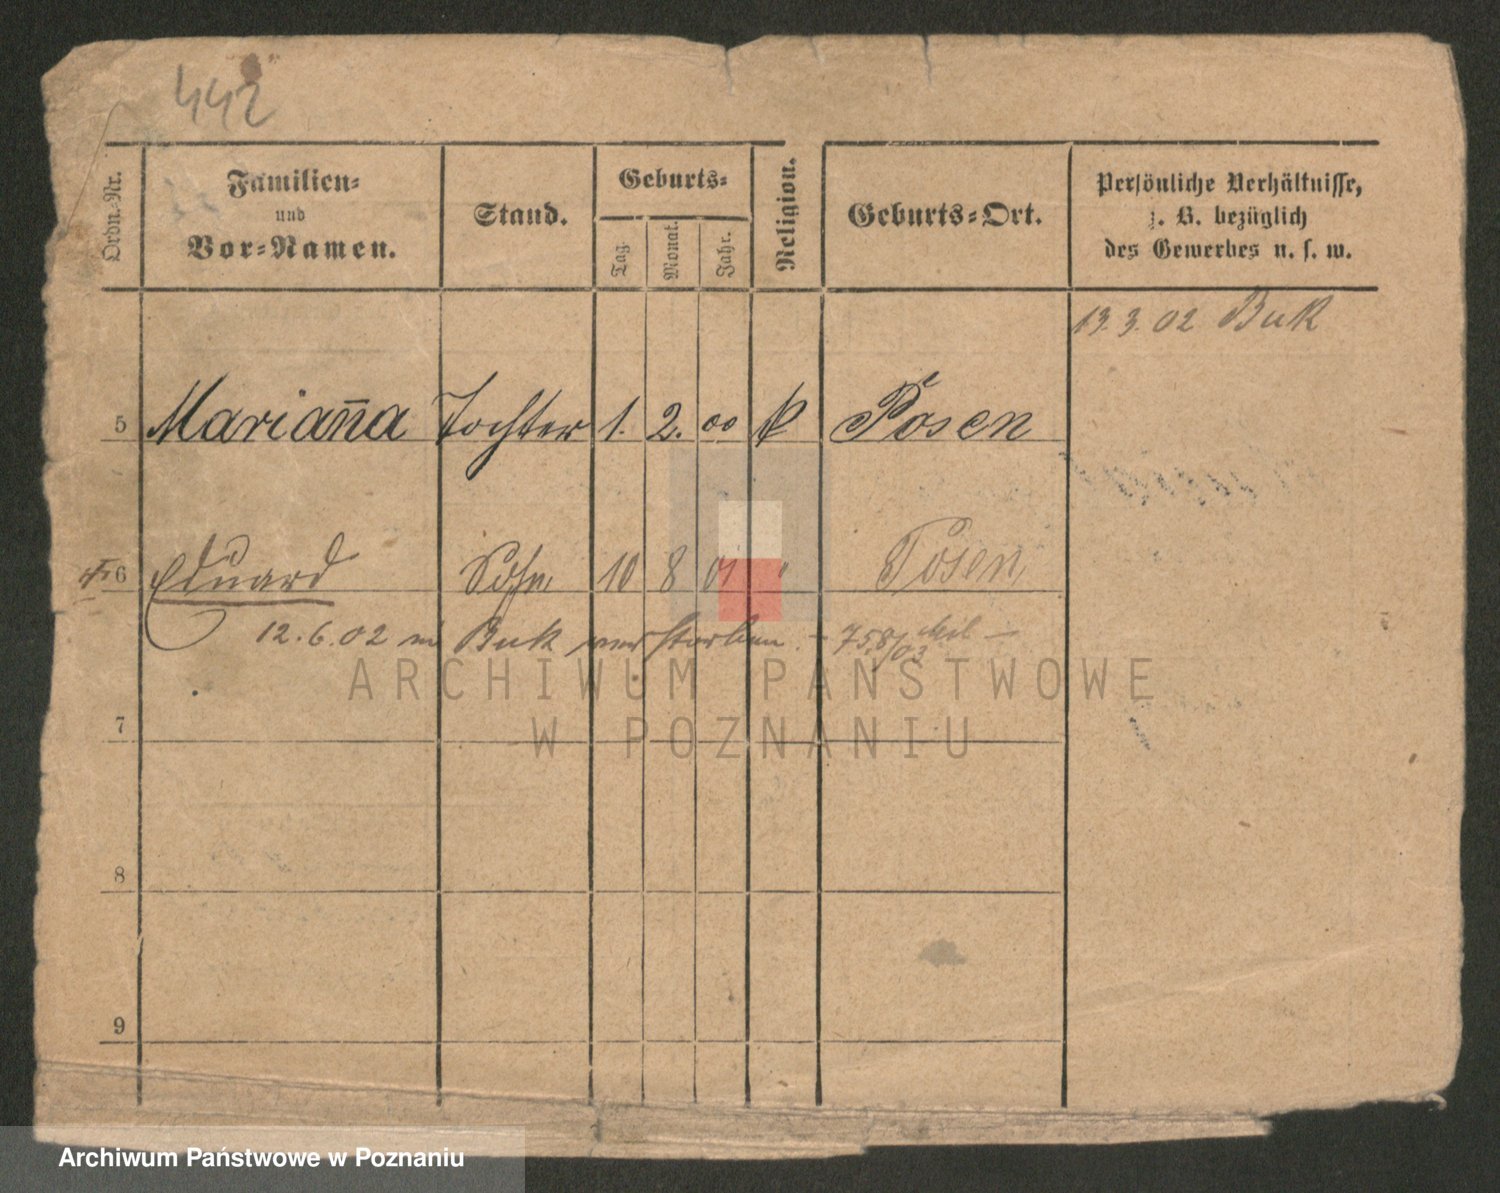 442
Ordn.-Nr.
Familien-
und
Vor-Namen.
Stand.
Geburts-
Tag.
Monat.
Jahr.
Religion.
Geburts-Ort.
Persönliche Verhältnisse,
z. B. bezüglich
des Gewerbes u. s. w.
13.3.02 Buk
5 Marian̄a Tochter 1. 2. 00 Posen
6 Eduard Sohn 10 8 01 " Posen
12.6.02 in Buk verstorben. – 758/03 –
7
8
9
ARCHIWUM PAŃSTWOWE
W POZNANIU
Archiwum Państwowe w Poznaniu